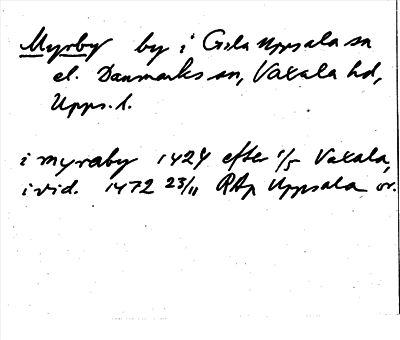 Myrby by i Gamla Uppsala sn
el. Danmarks sn, Vaxala hd,
Upps. l.
i myraby 1424 efter 1/5 Vaxala,
i vid. 1472 23/11 RAp Uppsala or.